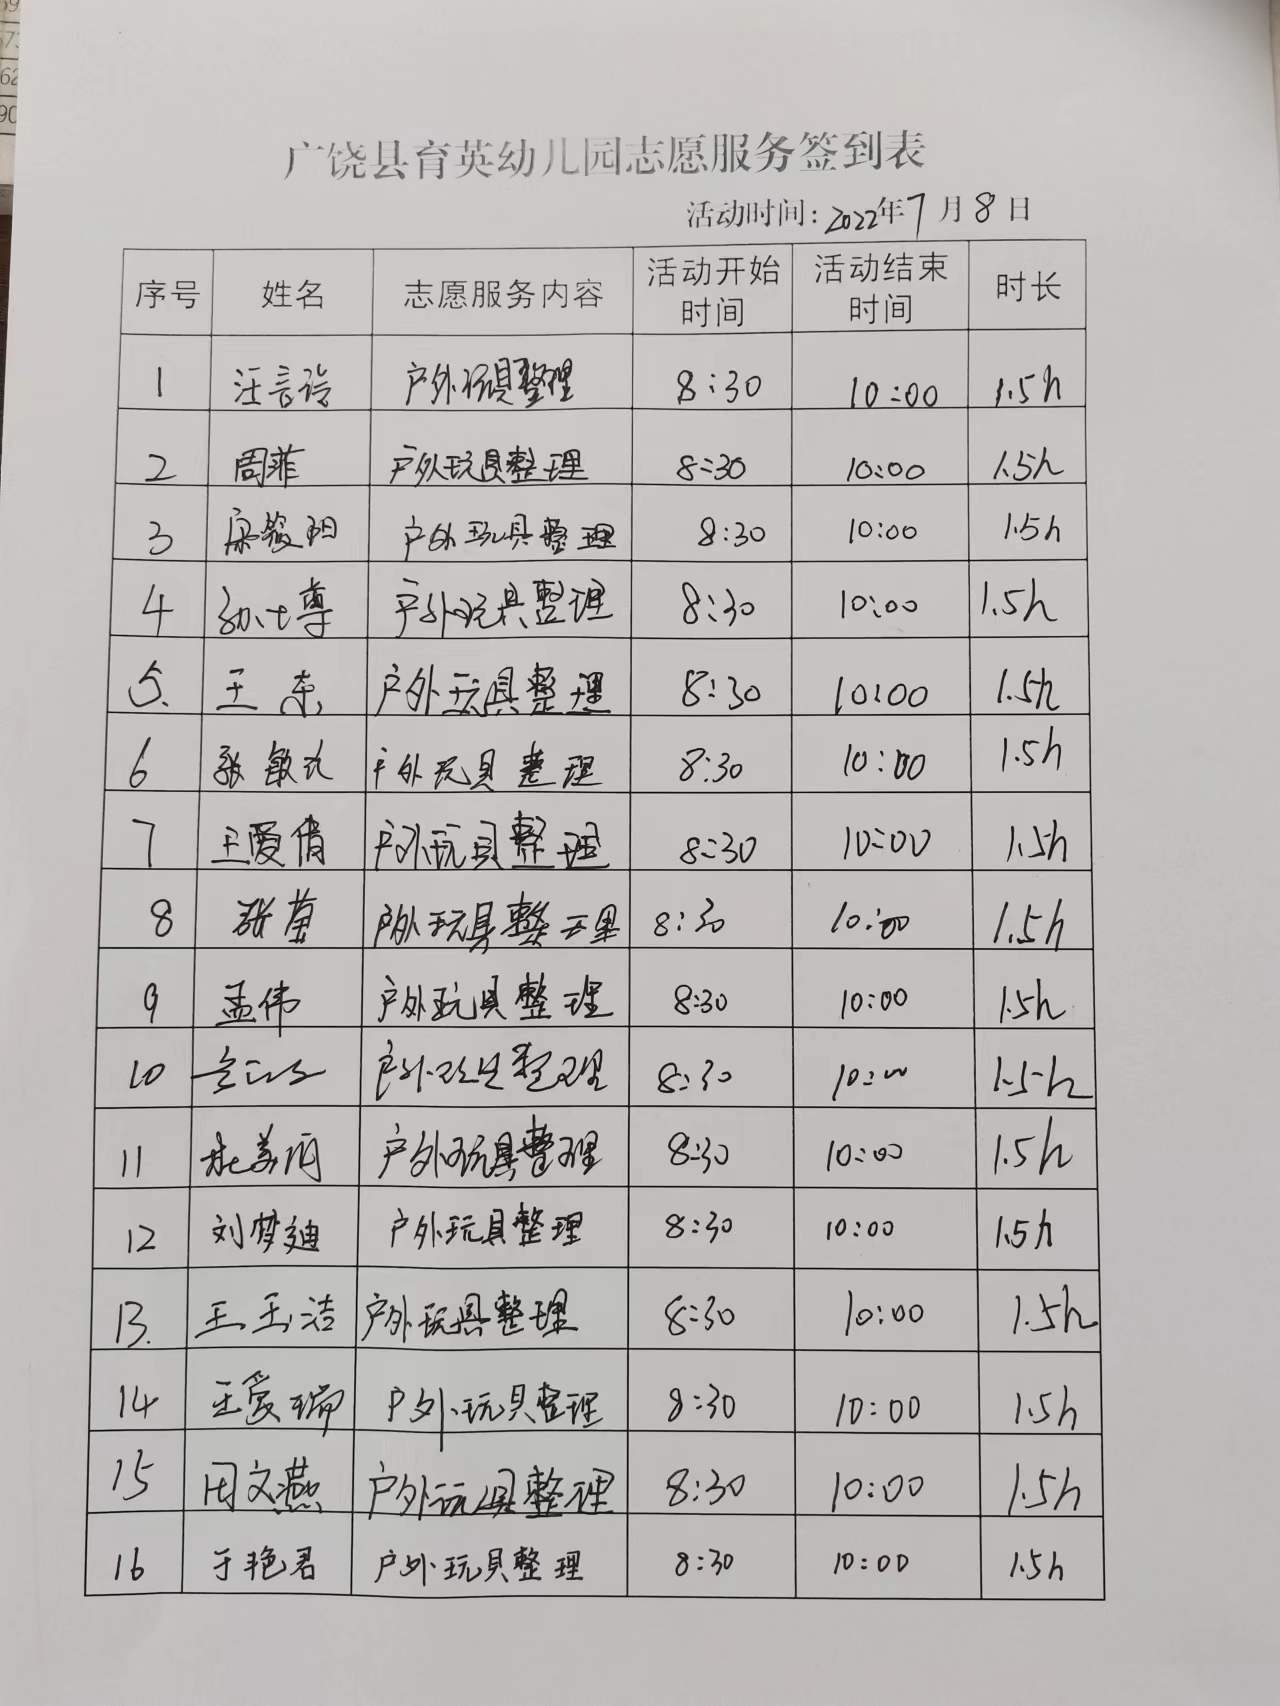 广饶县育英幼儿园志愿服务签到表
活动时间：2022年7月8日
序号 姓名 志愿服务内容 活动开始时间 活动结束时间 时长
1 汪言玲 户外玩具整理 8:30 10:00 1.5h
2 周菲 户外玩具整理 8:30 10:00 1.5h
3 户外玩具整理 8:30 10:00 1.5h
4 户外玩具整理 8:30 10:00 1.5h
5. 王东 户外玩具整理 8:30 10:00 1.5h
6 张敏 户外玩具整理 8:30 10:00 1.5h
7 王爱倩 户外玩具整理 8:30 10:00 1.5h
8 张苗 户外玩具整理 8:30 10:00 1.5h
9 孟伟 户外玩具整理 8:30 10:00 1.5h
10 户外玩具整理 8:30 10:00 1.5h
11 杜美丽 户外玩具整理 8:30 10:00 1.5h
12 刘梦迪 户外玩具整理 8:30 10:00 1.5h
13. 王玉洁 户外玩具整理 8:30 10:00 1.5h
14 王爱瑞 户外玩具整理 8:30 10:00 1.5h
15 周文燕 户外玩具整理 8:30 10:00 1.5h
16 于艳君 户外玩具整理 8:30 10:00 1.5h